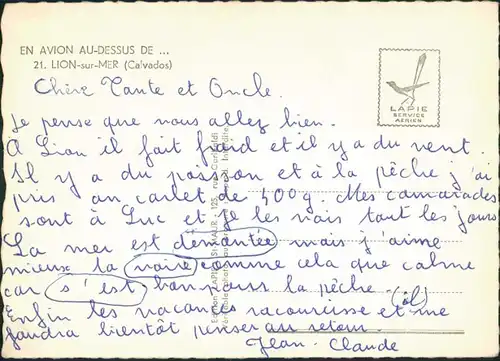 EN AVION AU-DESSUS DE ...
21. LION-sur-MER (Calvados)
LAPIE
SERVICE
AÉRIEN
Chère Tante et Oncle.
Je pense que vous allez bien.
A Lion il fait froid et il y a du vent.
Il y a du poisson et à la pêche j'ai
pris un carlet de 400g. Mes camarades
sont à Luc et je les vais tout les jours
La mer est démontée mais j'aime
mieux la voire comme cela que calme
car s'est bon pour la pêche.
(ol)
Enfin les vacances racourisse et me
faudra bientôt penser au retour.
Jean-Claude